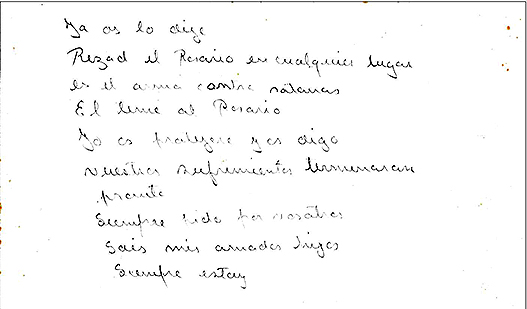 Ya os lo dige
Rezad el Rosario en cualquier lugar
es el arma contra satanas
El teme al Rosario
Yo os protegere y os digo
vuestros sufrimientos terminaran
pronto
Siempre pido por vosotros
Sois mis amados hijos
Siempre estoy